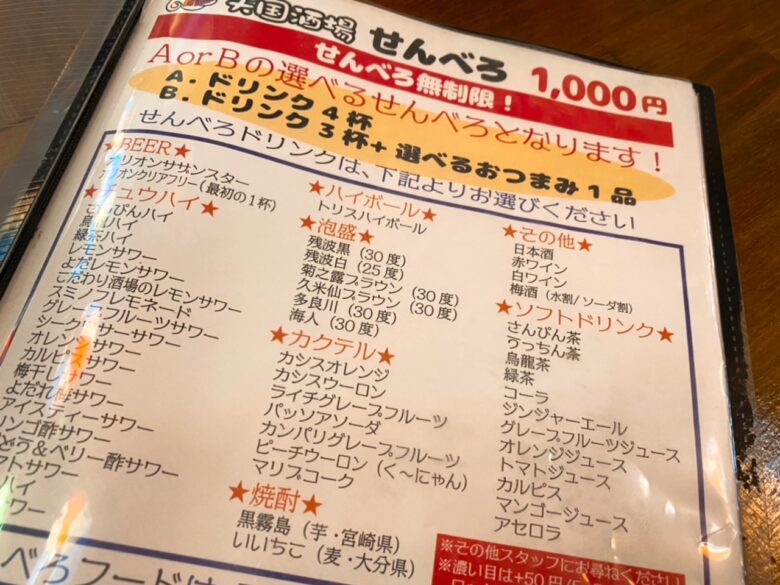 天国酒場 せんべろ 1,000円
せんべろ無制限！
A or Bの選べるせんべろとなります！
A. ドリンク4杯
B. ドリンク3杯+選べるおつまみ1品
せんべろドリンクは、下記よりお選びください
★BEER★
オリオンサザンスター
オリオンクリアフリー(最初の1杯)
★チュウハイ★
さんぴんハイ
烏龍ハイ
緑茶ハイ
レモンサワー
よだレモンサワー
こだわり酒場のレモンサワー
スミノフレモネード
グレープフルーツサワー
シークヮーサーサワー
オレンジサワー
カルピスサワー
梅干しサワー
よだれ梅サワー
アイスティーサワー
リンゴ酢サワー
どう&ベリー酢サワー
マトサワー
ハイ
ワー
★ハイボール★
トリスハイボール
★泡盛★
残波黒 (30度)
残波白 (25度)
菊之露ブラウン (30度)
久米仙ブラウン (30度)
多良川 (30度)
海人 (30度)
★カクテル★
カシスオレンジ
カシスウーロン
ライチグレープフルーツ
パッソアソーダ
カンパリグレープフルーツ
ピーチウーロン (く〜にゃん)
マリブコーク
★焼酎★
黒霧島 (芋・宮崎県)
いいちこ (麦・大分県)
★その他★
日本酒
赤ワイン
白ワイン
梅酒 (水割/ソーダ割)
★ソフトドリンク★
さんぴん茶
うっちん茶
烏龍茶
緑茶
コーラ
ジンジャーエール
グレープフルーツジュース
オレンジジュース
トマトジュース
カルピス
マンゴージュース
アセロラ
※その他スタッフにお尋ねください
※濃い目は+50円
べろフードは